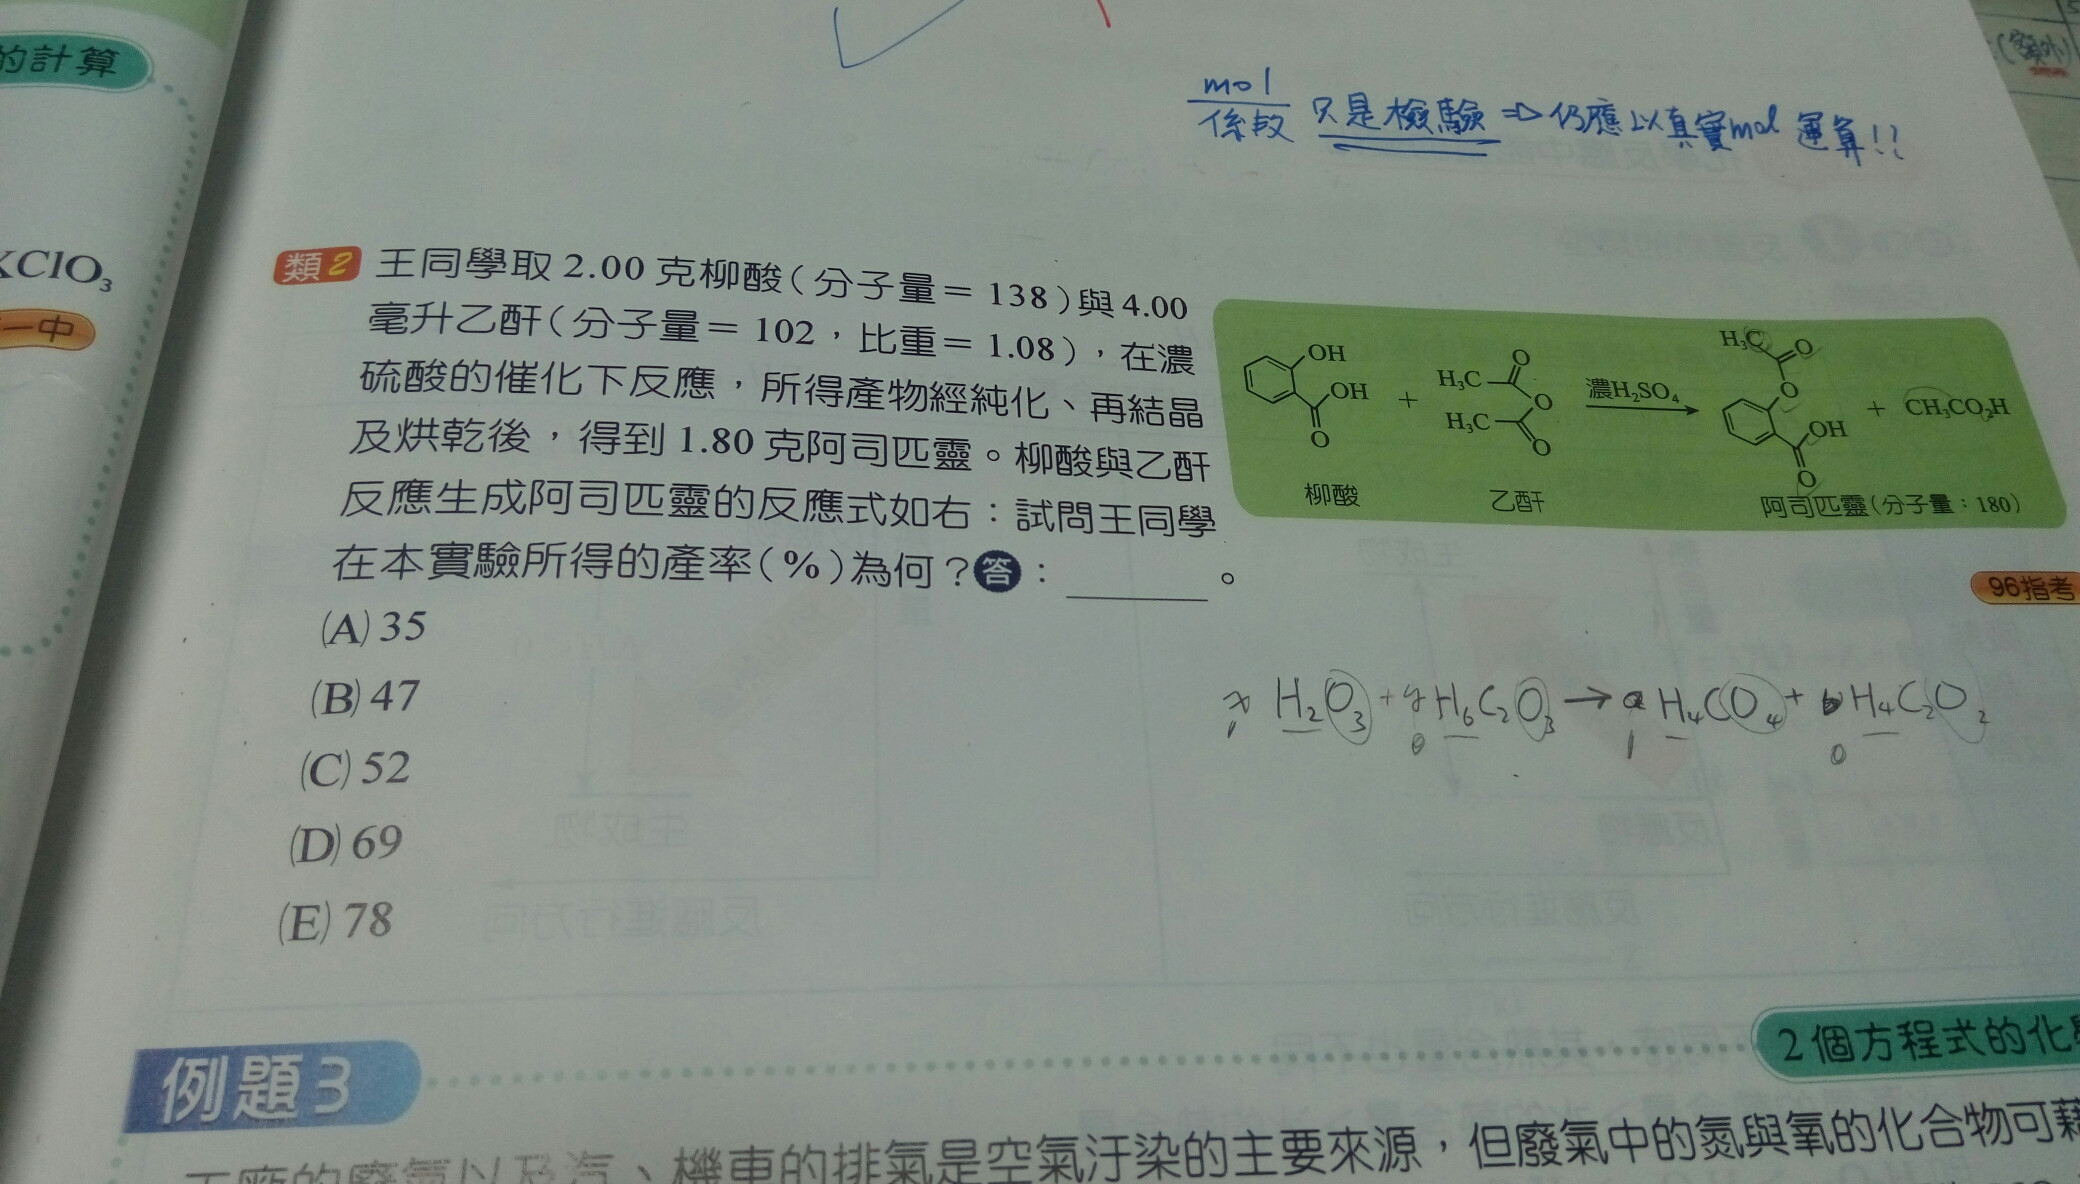 的計算
KClO₃
一中
(額外)
mol
係數 只是檢驗 ⇒ 仍應以真實mol 運算!!
類2 王同學取 2.00 克柳酸(分子量＝138)與4.00
毫升乙酐(分子量＝102，比重＝1.08)，在濃
硫酸的催化下反應，所得產物經純化、再結晶
及烘乾後，得到 1.80 克阿司匹靈。柳酸與乙酐
反應生成阿司匹靈的反應式如右：試問王同學
在本實驗所得的產率(%)為何？答：＿＿＿。
OH
OH
O
+
O
H₃C
O
H₃C
O
濃H₂SO₄
H₃C
O
O
OH
O
+ CH₃CO₂H
柳酸
乙酐
阿司匹靈(分子量：180)
96指考
(A) 35
(B) 47
(C) 52
(D) 69
(E) 78
x H₂O₃ + y H₆C₂O₃ → a H₄CO₄ + b H₄C₂O₂
1 0 1 0
例題3
2個方程式的化
的廢氣以及汽、機車的排氣是空氣汙染的主要來源，但廢氣中的氮與氧的化合物可藉